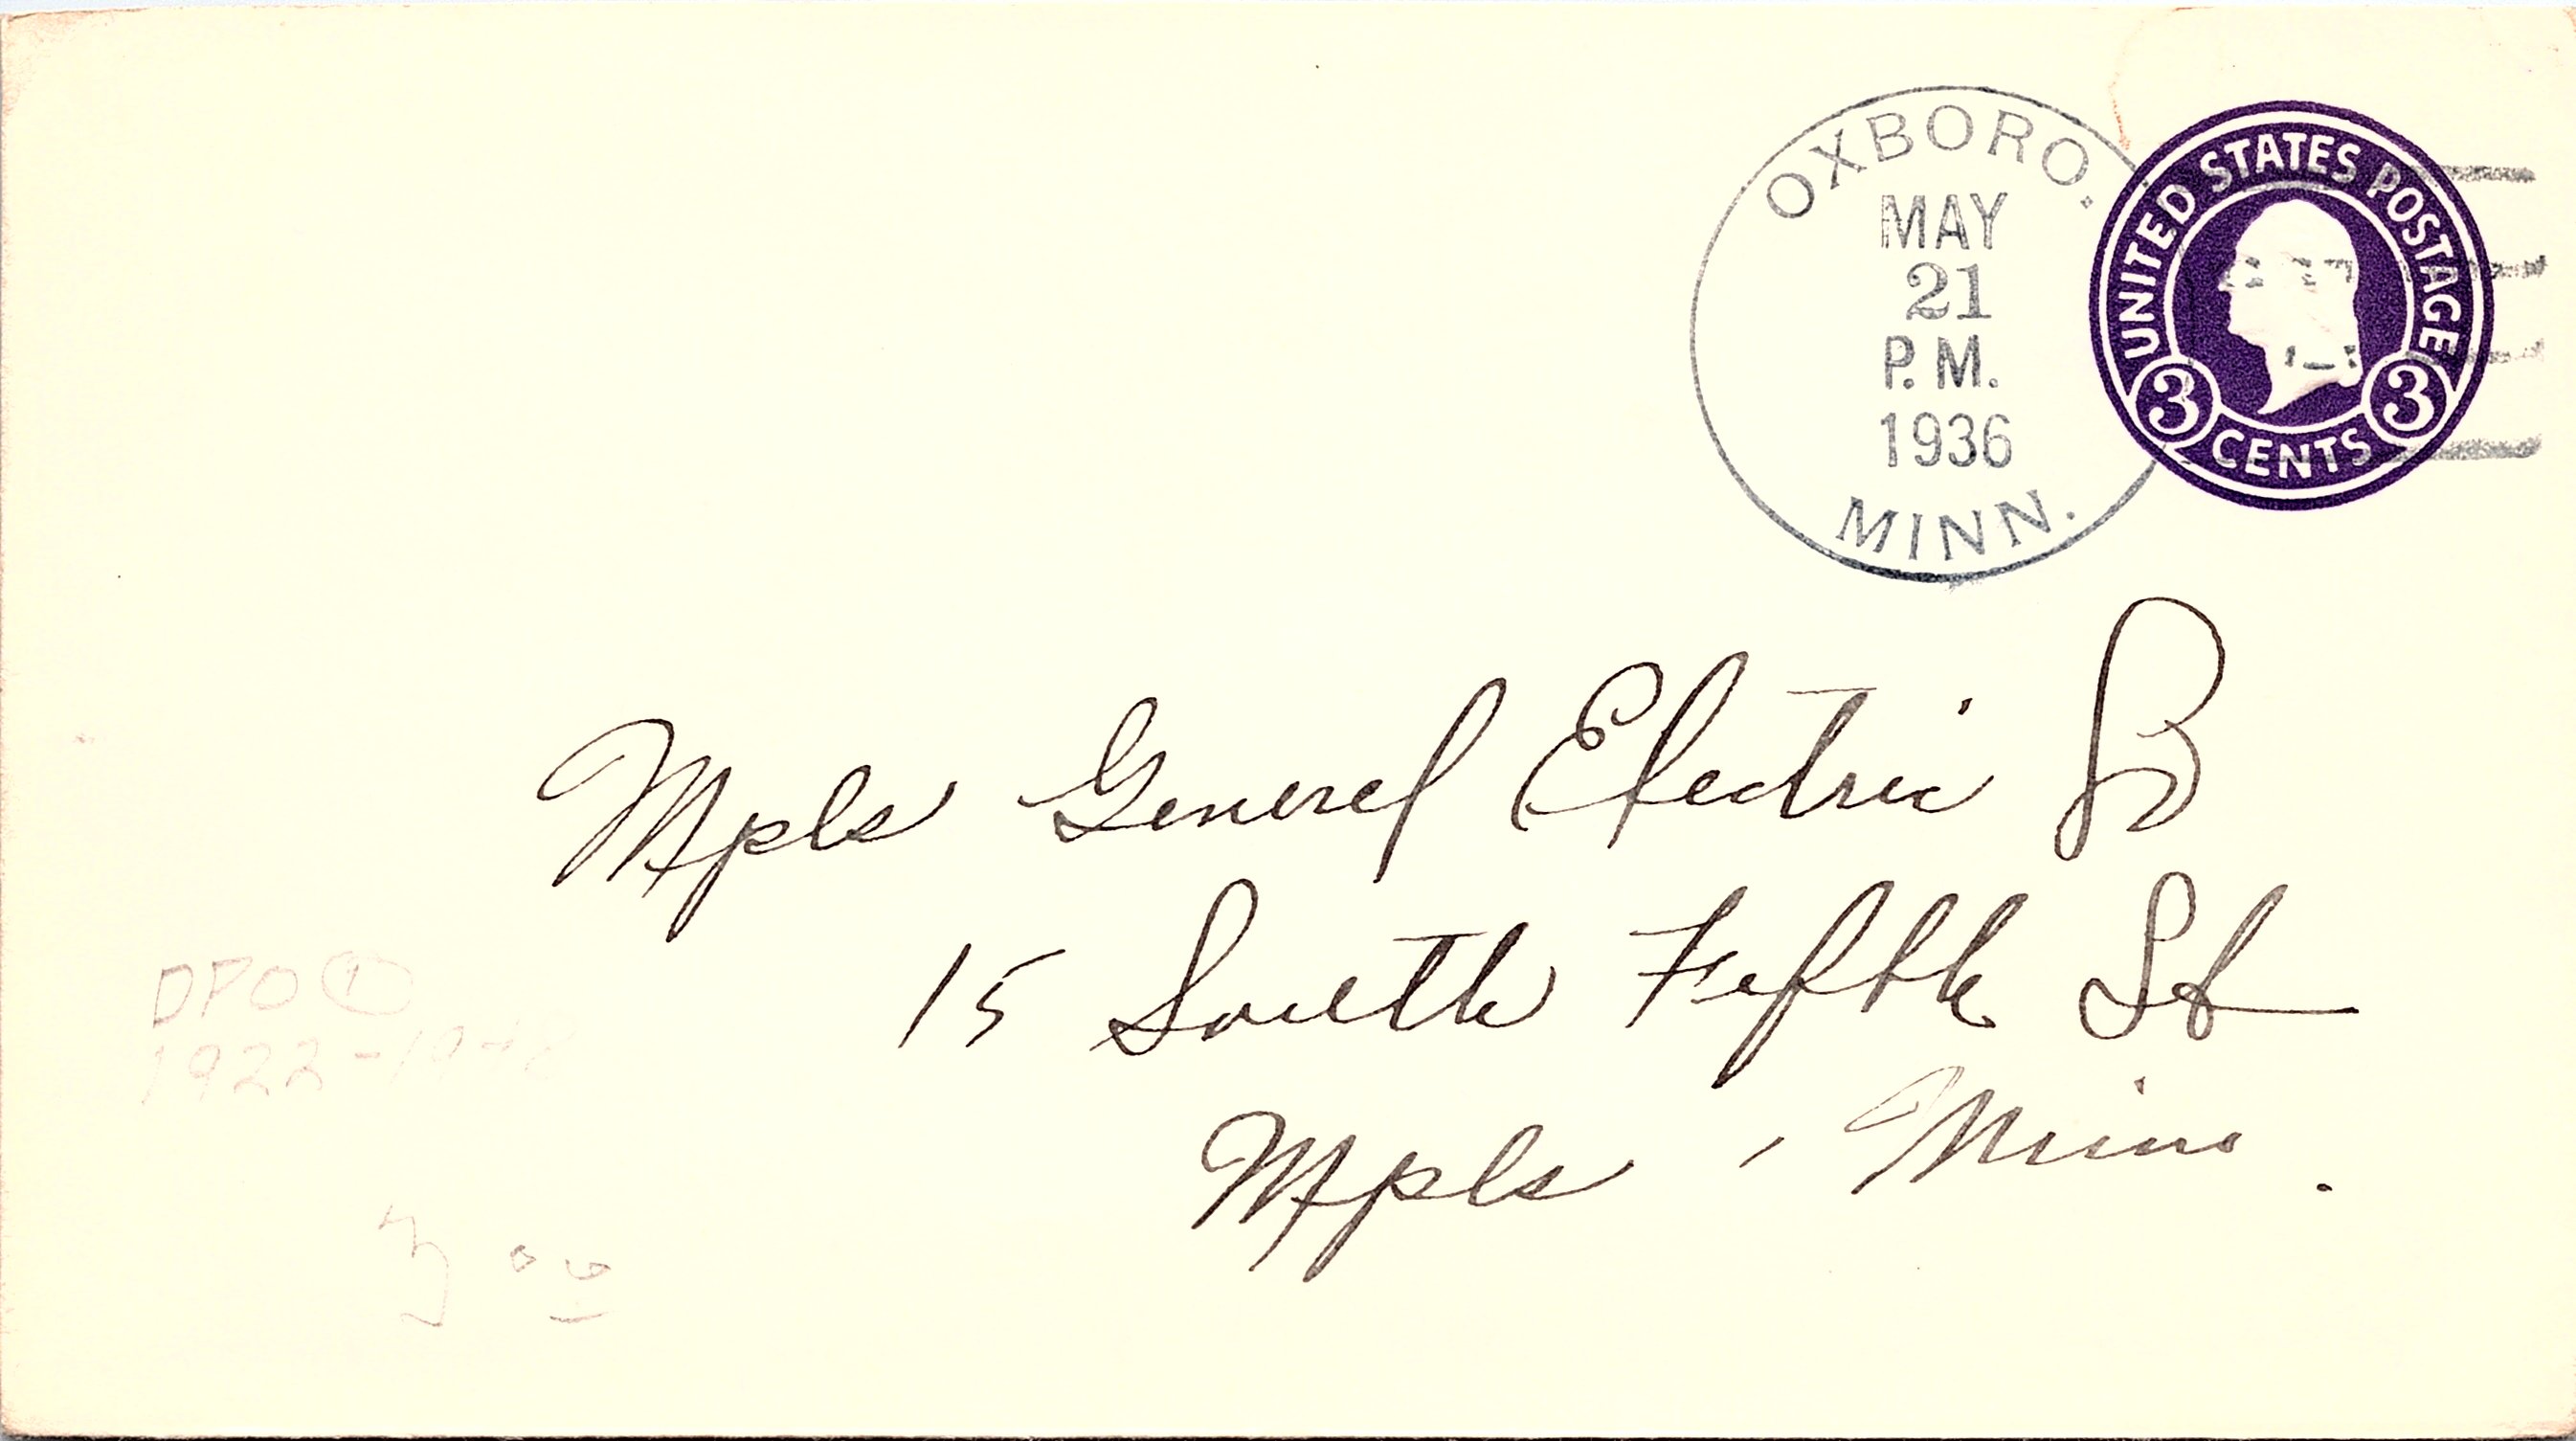 OXBORO.
MAY
21
P.M.
1936
MINN.
UNITED STATES POSTAGE
3 CENTS 3
Mpls General Electric Co
15 South Fifth St
Mpls, Minn.
DPO 1
1922-1948
3 00